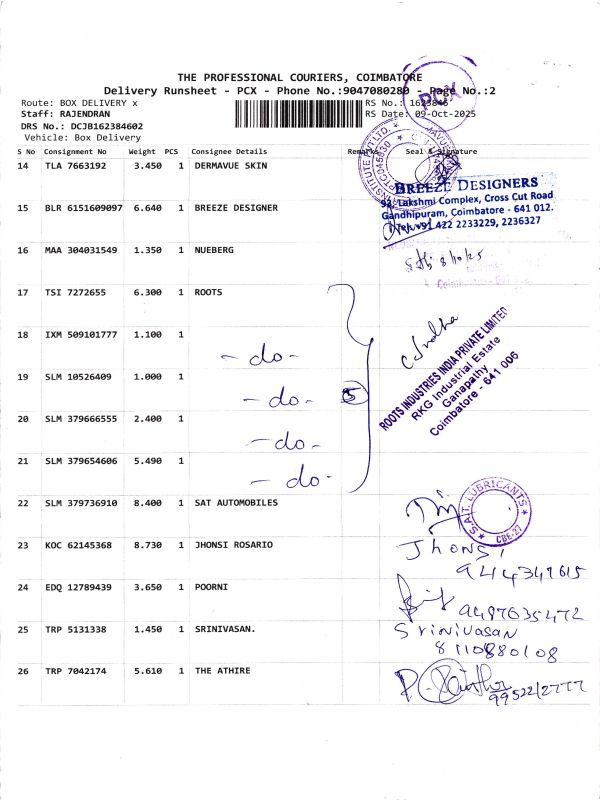 THE PROFESSIONAL COURIERS, COIMBATORE
Delivery Runsheet - PCX - Phone No.:9047080280 - Page No.:2
PCX
Route: BOX DELIVERY x
RS No.: 1623846
Staff: RAJENDRAN
RS Date: 09-Oct-2025
DRS No.: DCJB162384602
Vehicle: Box Delivery
S No Consignment No Weight PCS Consignee Details Remarks Seal & Signature
14 TLA 7663192 3.450 1 DERMAVUE SKIN
BREEZE DESIGNERS
93, Lakshmi Complex, Cross Cut Road
Gandhipuram, Coimbatore - 641 012.
Tel: +91 422 2233229, 2236327
15 BLR 6151609097 6.640 1 BREEZE DESIGNER
16 MAA 304031549 1.350 1 NUEBERG
8/10/25
17 TSI 7272655 6.300 1 ROOTS
18 IXM 509101777 1.100 1
- do -
C. Indha
ROOTS INDUSTRIES INDIA PRIVATE LIMITED
RKG Industrial Estate
Ganapathy
Coimbatore - 641 006
19 SLM 10526409 1.000 1
- do - 5
20 SLM 379666555 2.400 1
- do -
21 SLM 379654606 5.490 1
- do -
22 SLM 379736910 8.400 1 SAT AUTOMOBILES
S.A.T. LUBRICANTS
CBE-27
23 KOC 62145368 8.730 1 JHONSI ROSARIO
Jhonsi
944349615
24 EDQ 12789439 3.650 1 POORNI
9487635472
25 TRP 5131338 1.450 1 SRINIVASAN.
Srinivasan
8110880108
26 TRP 7042174 5.610 1 THE ATHIRE
9952212777